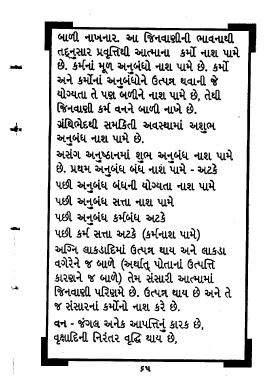 બાળી નાખનાર. આ જિનવાણીની ભાવનાથી
તદ્દનુસાર પ્રવૃત્તિથી આત્માના કર્મો નાશ પામે
છે. કર્મનાં મૂળ અનુબંધો નાશ પામે છે. કર્મો
અને કર્મોનાં અનુબંધોને ઉત્પન્ન થવાની જે
યોગ્યતા તે પણ બળીને નાશ પામે છે, તેથી
જિનવાણી કર્મ વનને બાળી નાખે છે.
ગ્રંથિભેદથી સમકિતી અવસ્થામાં અશુભ
અનુબંધ નાશ પામે છે.
અસંગ અનુષ્ઠાનમાં શુભ અનુબંધ નાશ પામે
છે. પ્રથમ અનુબંધ બંધ નાશ પામે - અટકે
પછી અનુબંધ બંધની યોગ્યતા નાશ પામે
પછી અનુબંધ સત્તા નાશ પામે
પછી અનુબંધ કર્મબંધ અટકે
પછી કર્મ સત્તા અટકે (કર્મનાશ પામે)
અગ્નિ લાકડાદિમાં ઉત્પન્ન થાય અને લાકડા
વગેરેને જ બાળે (અર્થાત્ પોતાનાં ઉત્પત્તિ
કારણને જ બાળે) તેમ સંસારી આત્મામાં
જિનવાણી પરિણમે છે. ઉત્પન્ન થાય છે અને તે
જ સંસારનાં કર્મોનો નાશ કરે છે.
વન - જંગલ અનેક આપત્તિનું કારક છે,
વૃક્ષાદિની નિરંતર વૃદ્ધિ થાય છે,
૬૫